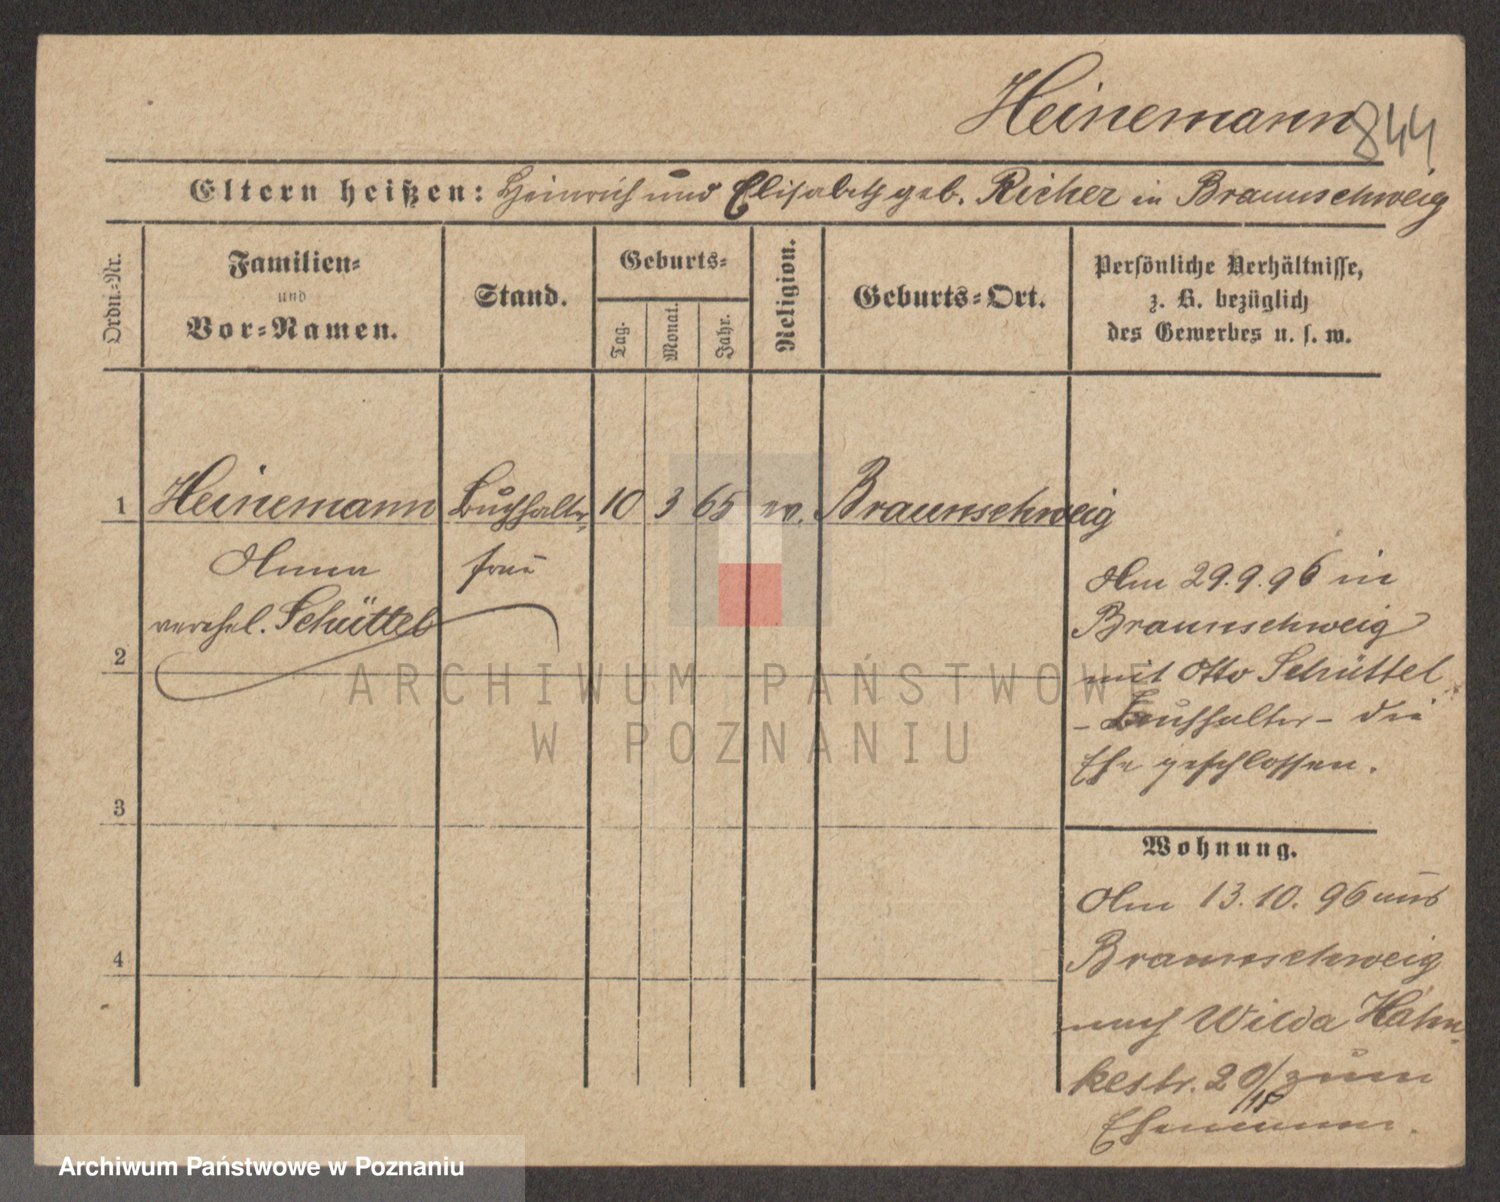 Heinemann 844
Eltern heißen: Heinrich und Elisabeth geb. Richer in Braunschweig
Ordn.-Nr.
Familien-
und
Vor-Namen.
Stand.
Geburts-
Tag.
Monat.
Jahr.
Religion.
Geburts-Ort.
Persönliche Verhältnisse,
z. B. bezüglich
des Gewerbes u. s. w.
1 Heinemann Buchhalter 10 3 65 ev. Braunschweig
Anna frau
verehel. Schüttel
2
3
4
Am 29.9.96 in
Braunschweig
mit Otto Schüttel
- Buchhalter - die
Ehe geschlossen.
Wohnung.
Am 13.10.96 aus
Braunschweig
nach Wilda Hahn-
kestr. 20/ zum
Ehemann.
ARCHIWUM PAŃSTWOWE
W POZNANIU
Archiwum Państwowe w Poznaniu